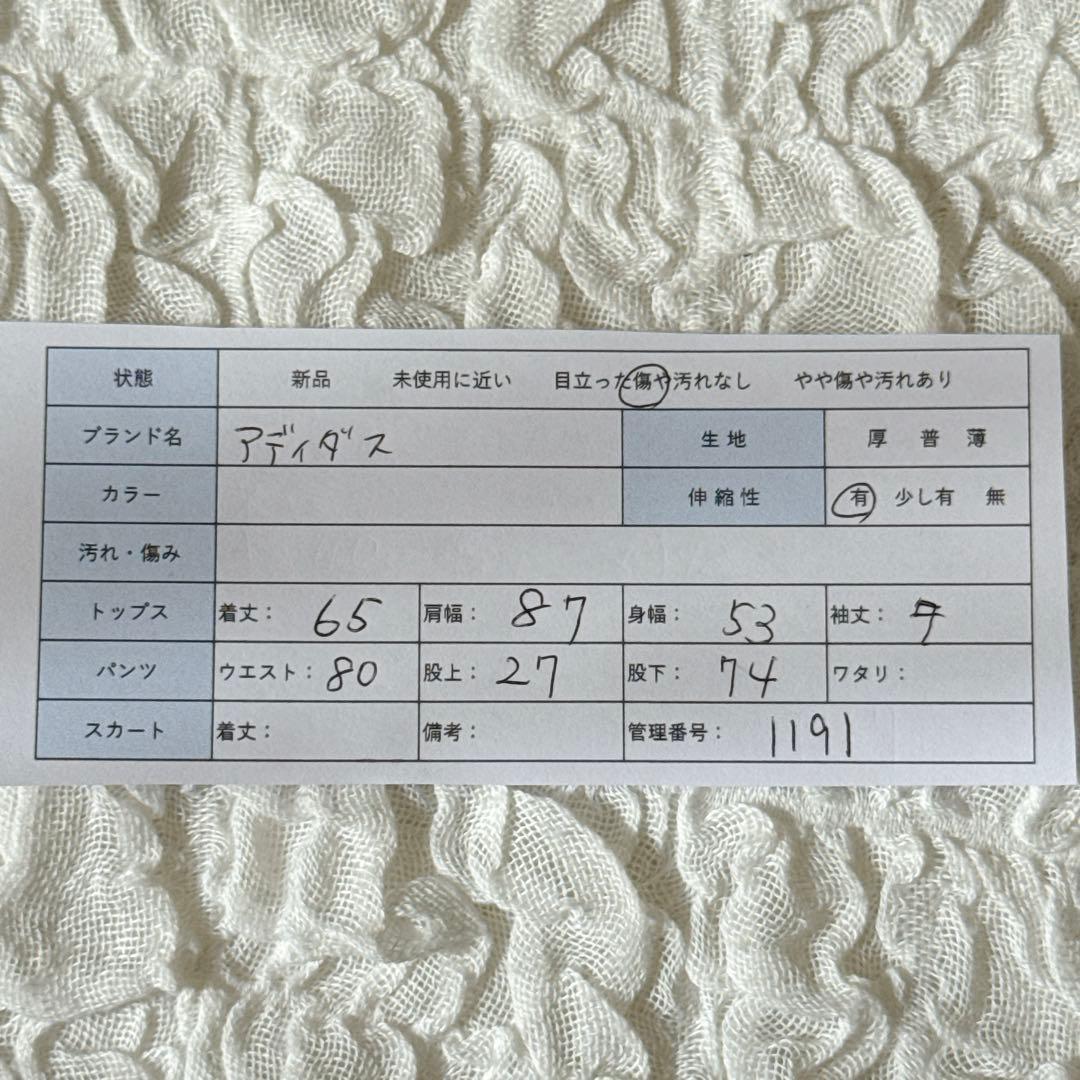 状態 新品 未使用に近い 目立った傷や汚れなし やや傷や汚れあり
ブランド名 アディダス 生地 厚 普 薄
カラー 伸縮性 有 少し有 無
汚れ・傷み
トップス 着丈: 65 肩幅: 87 身幅: 53 袖丈:
パンツ ウエスト: 80 股上: 27 股下: 74 ワタリ:
スカート 着丈: 備考: 管理番号: 1191